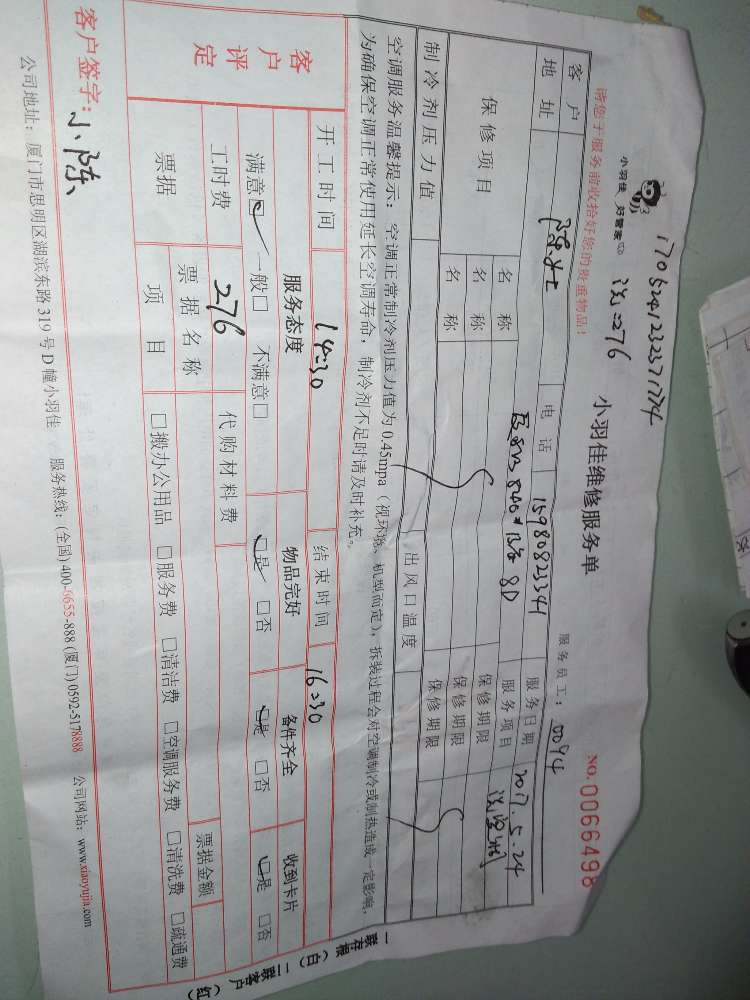 17052412323371224
小羽佳 好管家
洗=276
小羽佳维修服务单
服务员工: 0094
NO. 0066498
请您于服务前收拾好您的贵重物品!
客户 陈女士 电话 15980823341 服务日期 2017.5.24
地址 8D 服务项目
保修项目 名称 保修期限
名称 保修期限
名称 保修期限
制冷剂压力值 出风口温度
空调服务温馨提示:空调正常制冷剂压力值为0.45mpa(视环境、机型而定),拆装过程会对空调制冷或制热造成一定影响,
为确保空调正常使用延长空调寿命,制冷剂不足时请及时补充。
开工时间 14=30 结束时间 16=30
客户评定 服务态度 物品完好 备件齐全 收到卡片
满意☑ 一般□ 不满意□ ☑是 □否 ☑是 □否 ☑是 □否
工时费 276 代购材料费 票据金额
票据 票据名称 □搬办公用品 □服务费 □清洁费 □空调服务费 □清洗费 □疏通费
项目
客户签字: 小陈
公司地址:厦门市思明区湖滨东路319号D幢小羽佳 服务热线:(全国)400-6655-888 (厦门)0592-5178888 公司网站:www.xiaoyujia.com
一联存根(白) 二联客户(红)